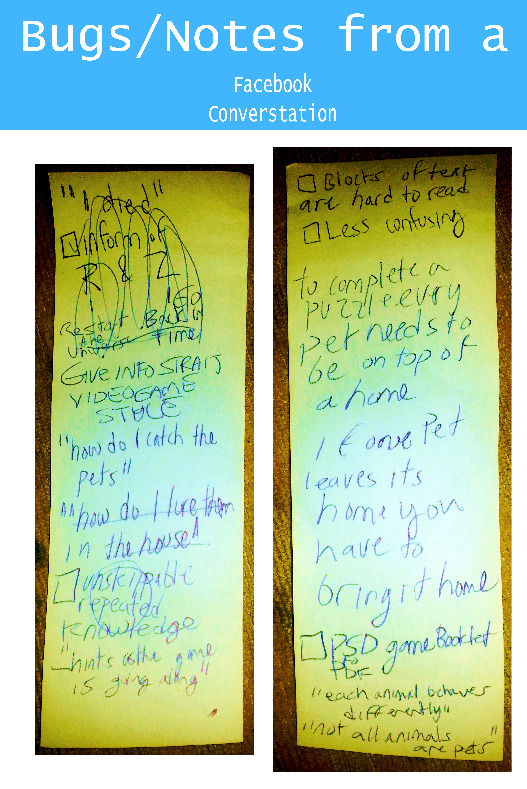 Bugs/Notes from a
Facebook
Converstation
"I died"
inform of
R & Z
Restart Back in
the
Universe Time
GIVE INFO STRAIT
VIDEOGAME
STYLE
"how do I catch the
pets"
"how do I lure them
in the house"
unskippable
repeated
knowledge
"hints as the game
is going along"
Blocks of text
are hard to read
Less confusing
to complete a
puzzle every
pet needs to
be on top of
a home
if one pet
leaves its
home you
have to
bring it home
PSD game Booklet
PDF
"each animal behaves
differently"
"not all animals
are pets"